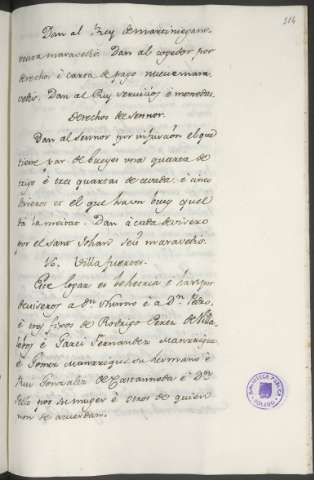 214
Dan al Rey de martiniega no-
venta maravedis. Dan al cogedor por
derechos é carta de pago nueve mara-
vedis. Dan al Rey servicios é monedas.
derechos de Sennor.
Dan al Sennor por infurcion el que
tiene par de bueyes una quarta de
trigo é tres quartas de cevada, é cinco
dineros et el que ha un buey quel
dá la meitad. Dan á cada devisero
por el sant Johan seis maravedis.
16. Villa fuertes.
Este logar es behetria é han por
deviseros a Dn Nunno é a Dn Pedro,
é los fijos de Rodrigo Perez de Villa
lobos é Garci Fernandez Manrique
é Gomez Manrique su hermano é
Rui Gonzalez de Castanneda é Dn
Tello por su muger é otros de quien
non se acuerdan.
BIBLIOTECA PÚBLICA
TOLEDO